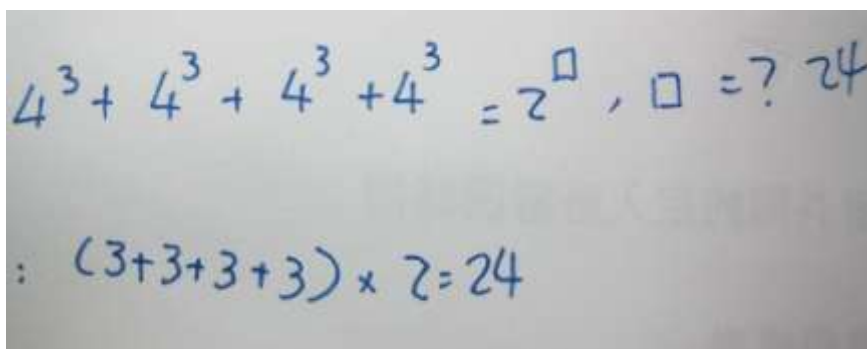 4³ + 4³ + 4³ + 4³ = 2^□ , □ = ? 24
: (3+3+3+3) × 2 = 24